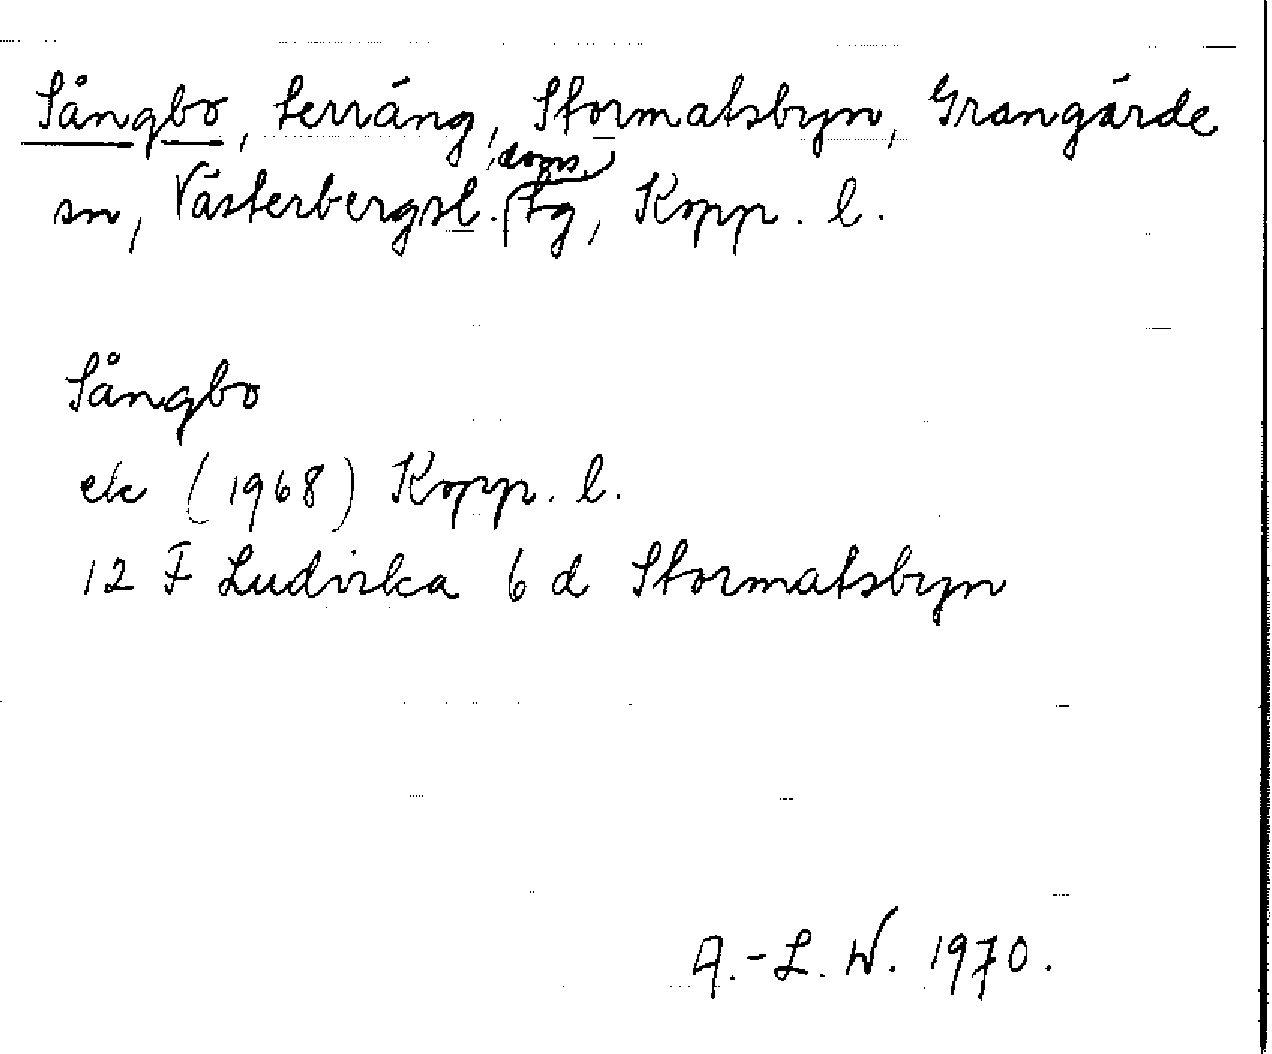 Sångbo, terräng, Stormatsbyn, Grangärde
sn, Västerbergsl. doms. tg, Kopp. l.
Sångbo
ek (1968) Kopp. l.
12 F Ludvika 6 d Stormatsbyn
A.-L. W. 1970.